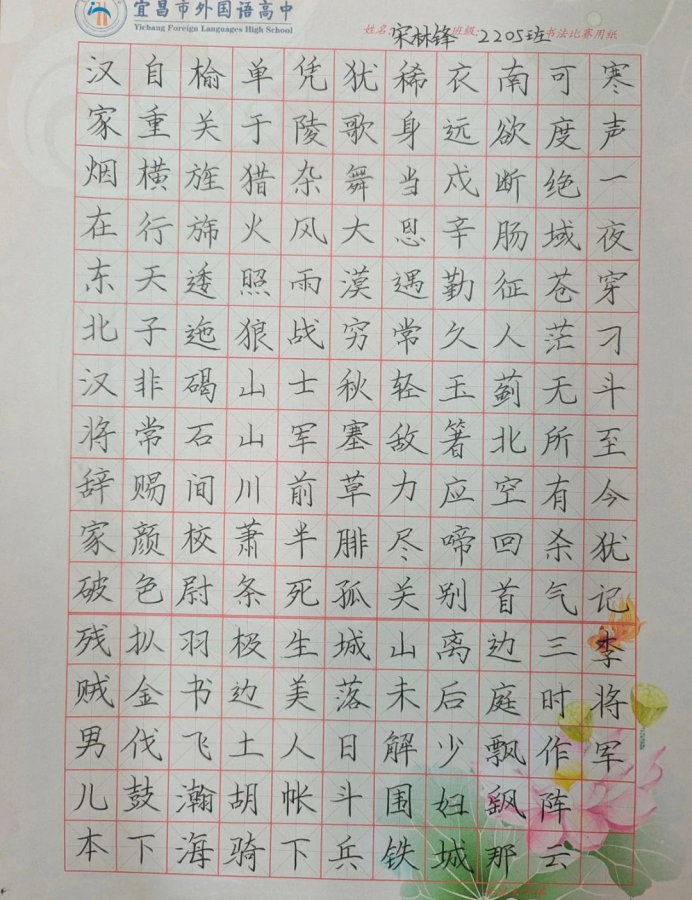 宜昌市外国语高中
Yichang Foreign Languages High School
姓名:宋林锋班级:2205班书法比赛用纸
汉家烟在东北汉将辞家破残贼男儿本
自重横行天子非常赐颜色扒金伐鼓下
榆关旌旆逶迤碣石间校尉羽书飞瀚海
单于猎火照狼山山川萧条极边土胡骑
凭陵杂风雨战士军前半死生美人帐下
犹歌舞大漠穷秋塞草腓孤城落日斗兵
稀身当恩遇常轻敌力尽关山未解围铁
衣远戍辛勤久玉箸应啼别离后少妇城
南欲断肠征人蓟北空回首边庭飘飖那
可度绝域苍茫无所有杀气三时作阵云
寒声一夜穿刁斗至今犹记李将军